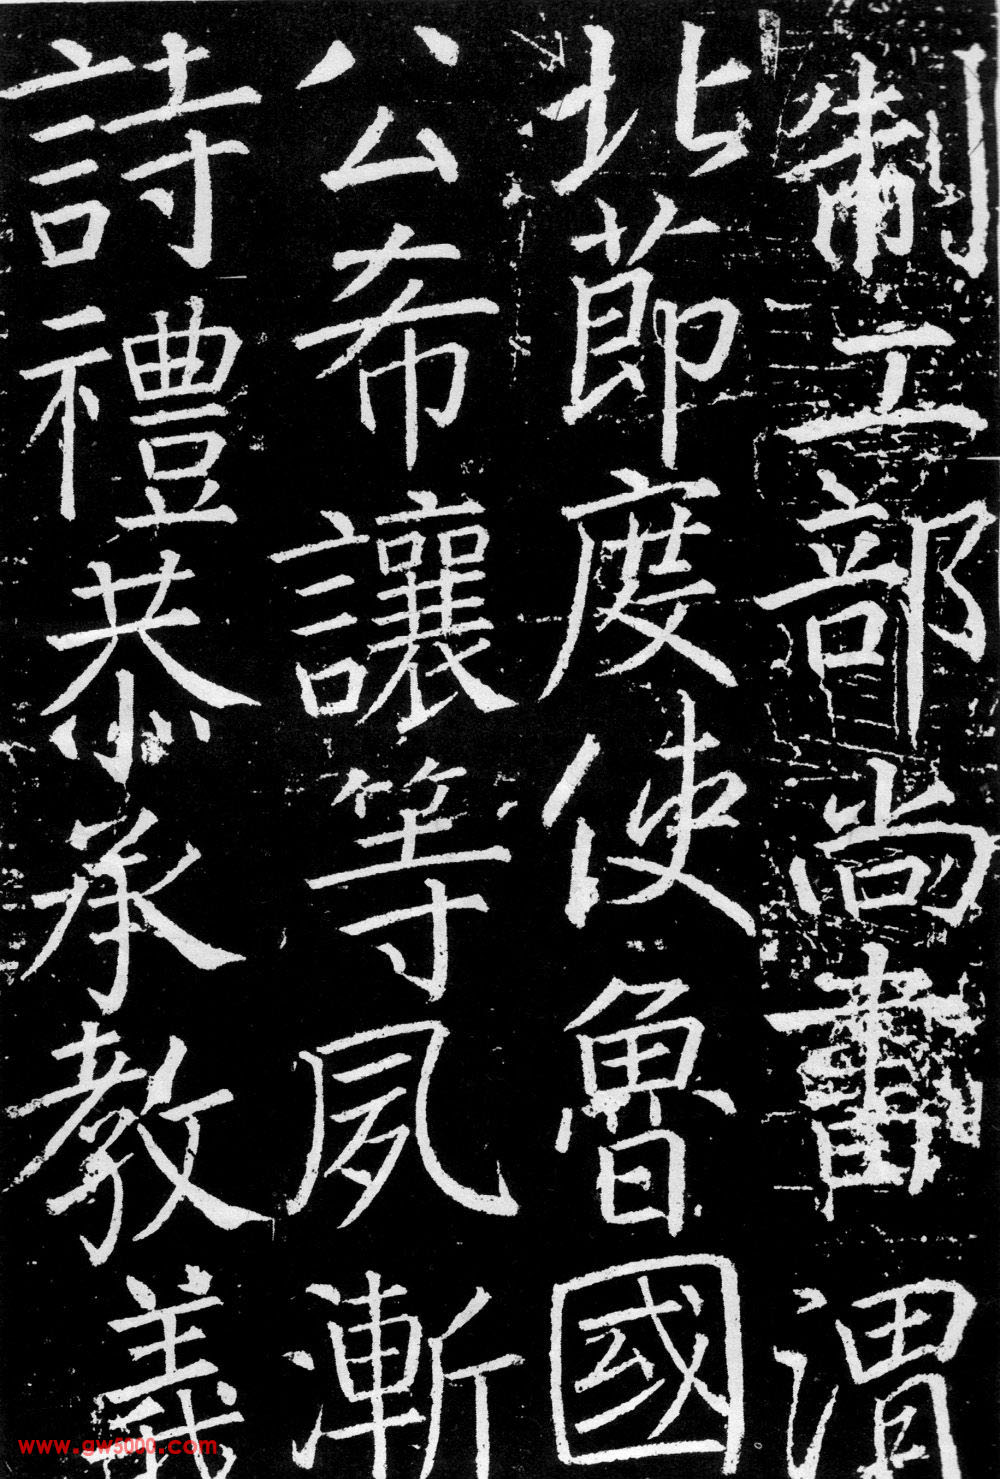 制工部尚書渭
北節度使魯國
公希讓等夙漸
詩禮恭承教義
www.gw5000.com